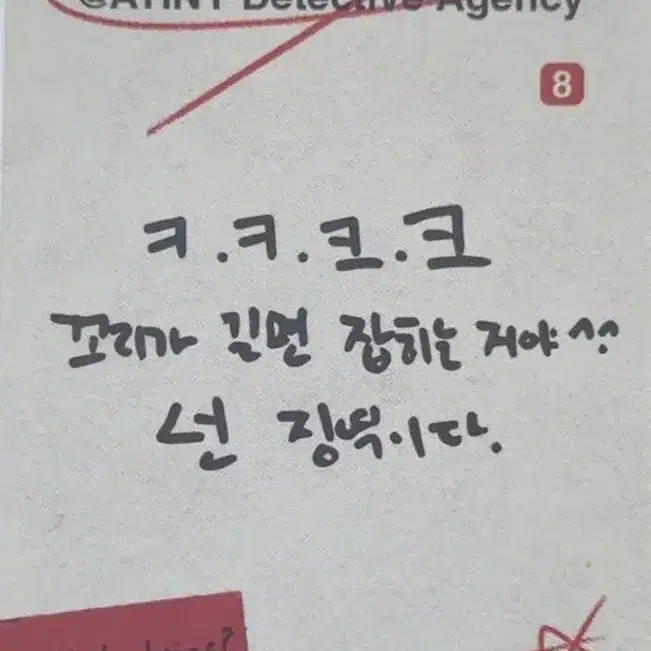 ©ATINY Detective Agency
8
ㅋ.ㅋ.크.크
꼬리가 길면 잡히는 거야^^
넌 징역이다.